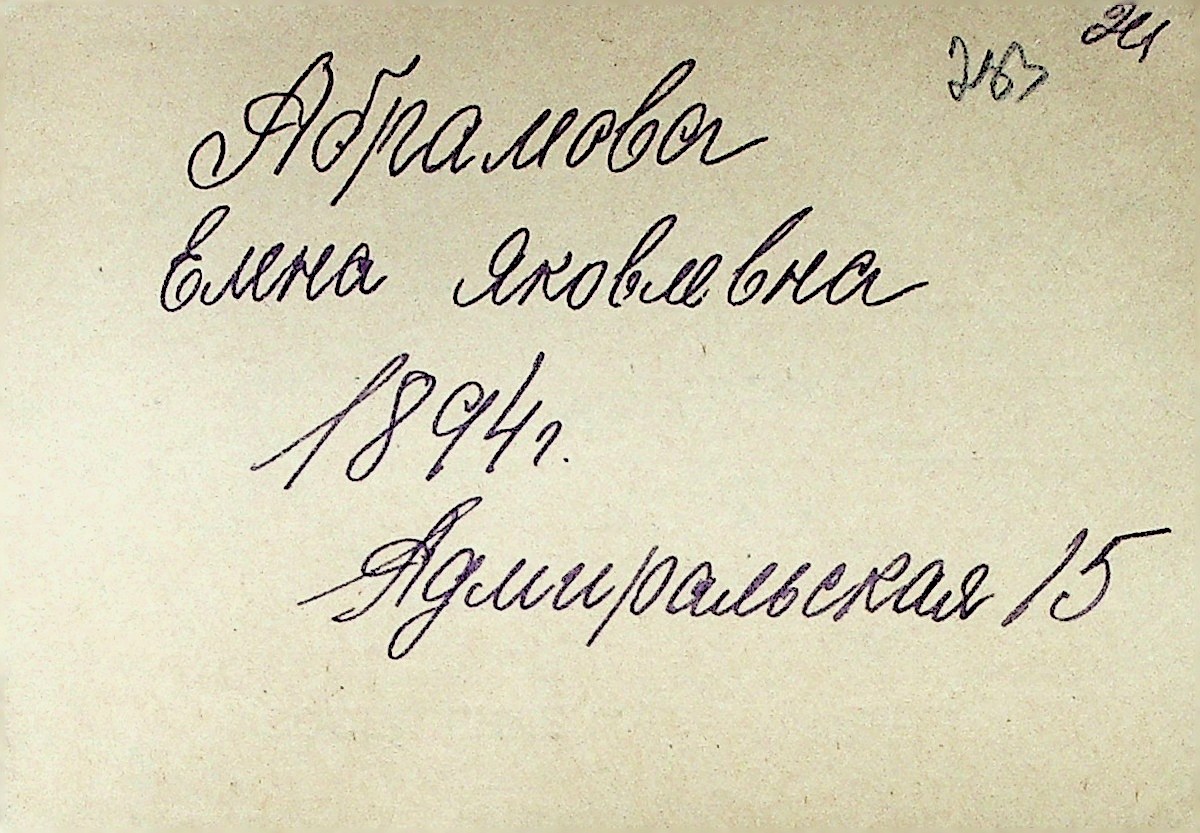 24
283
Абрамова
Елена Яковлевна
1894 г.
Адмиральская 15